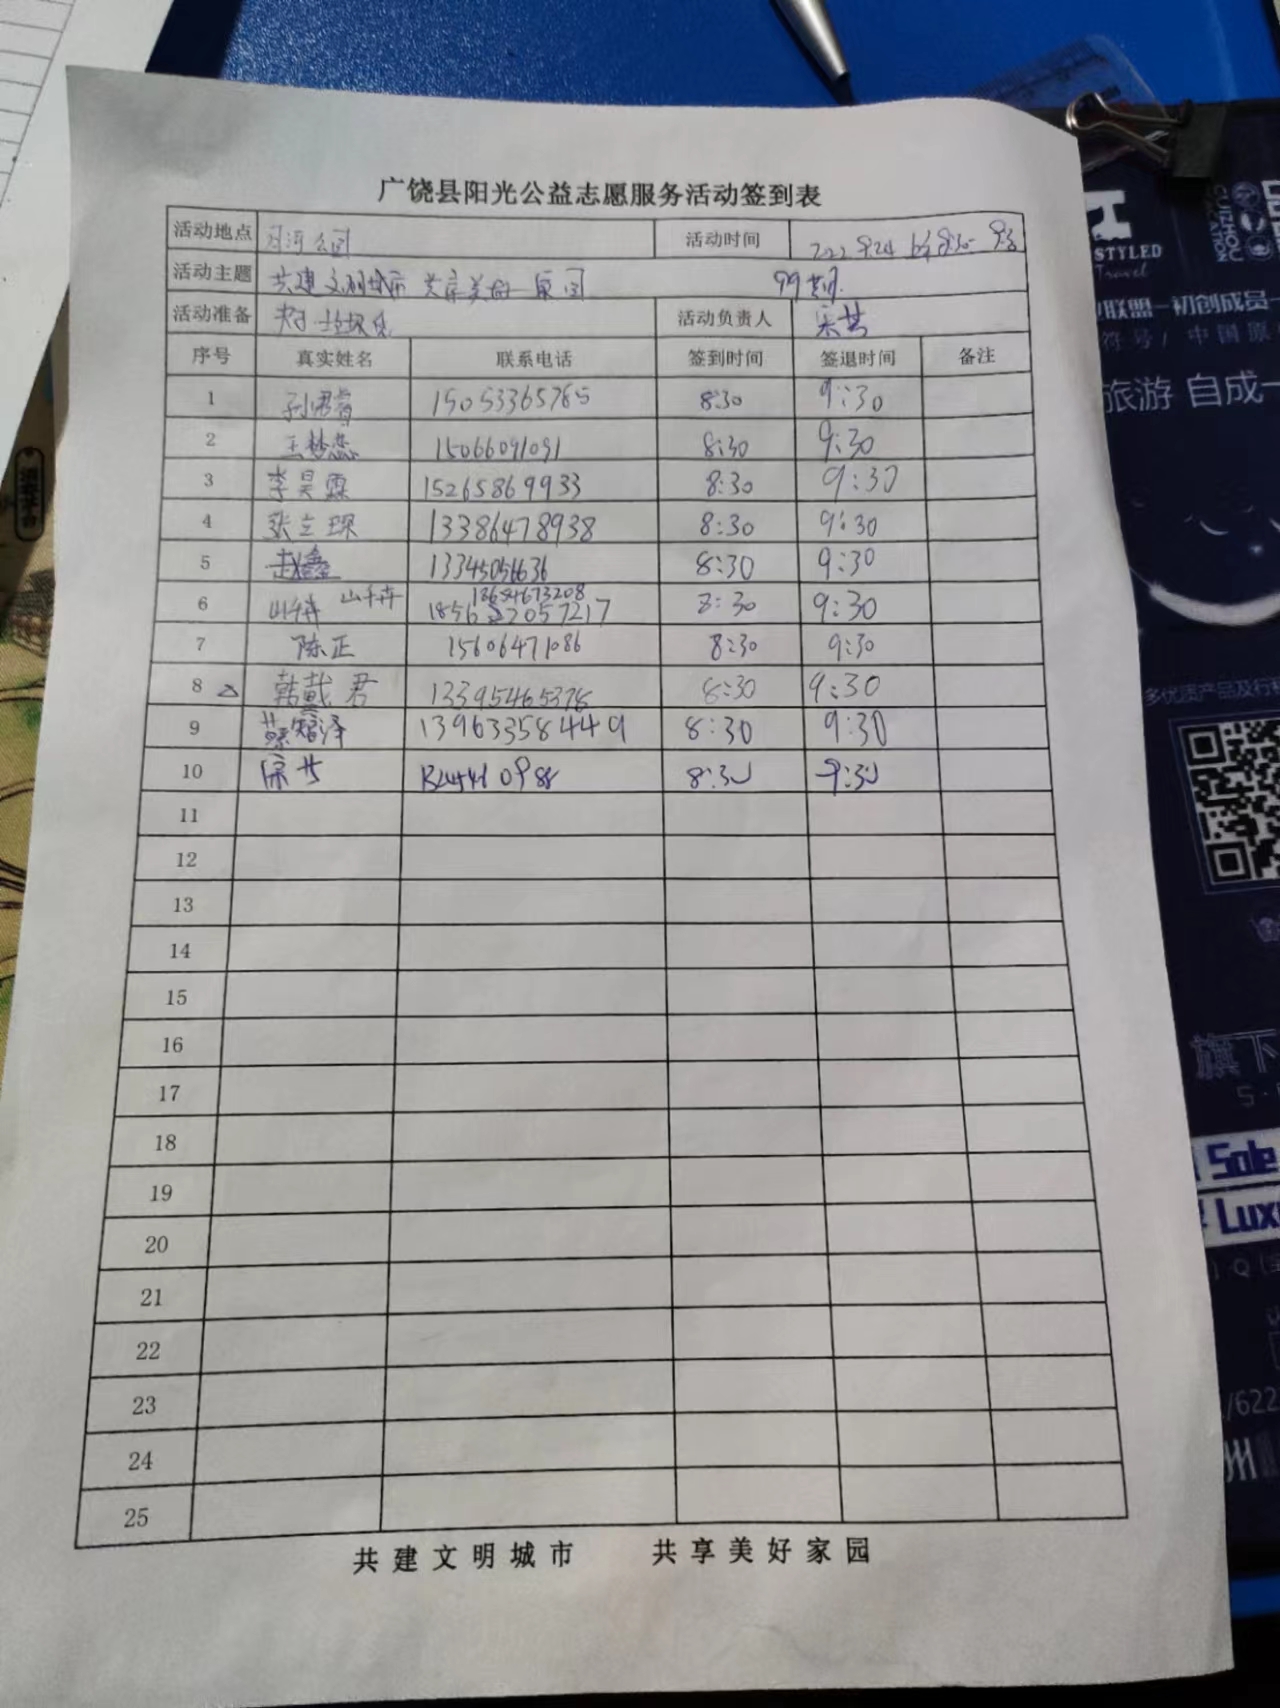 广饶县阳光公益志愿服务活动签到表
活动地点 月河公园 活动时间
活动主题 共建文明城市 共享美好家园 99期
活动准备 夹子 垃圾袋 活动负责人
序号 真实姓名 联系电话 签到时间 签退时间 备注
1 孙君睿 15053365785 8:30 9:30
2 王梦蕊 15066091091 8:30 9:30
3 李昊霖 15265869933 8:30 9:30
4 张立琛 13386478938 8:30 9:30
5 赵鑫 13345056636 8:30 9:30
6 山千卉 山千卉 18654673208 8:30 9:30
7 陈正 15606471086 8:30 9:30
8 韩戴君 13395465378 8:30 9:30
9 蔡智泽 13963358449 8:30 9:30
10 8:30 9:30
11
12
13
14
15
16
17
18
19
20
21
22
23
24
25
共建文明城市 共享美好家园
STYLED
Travel
联盟—初创成员
符号/中国原
旅游 自成一
旗下
Sole
Lux